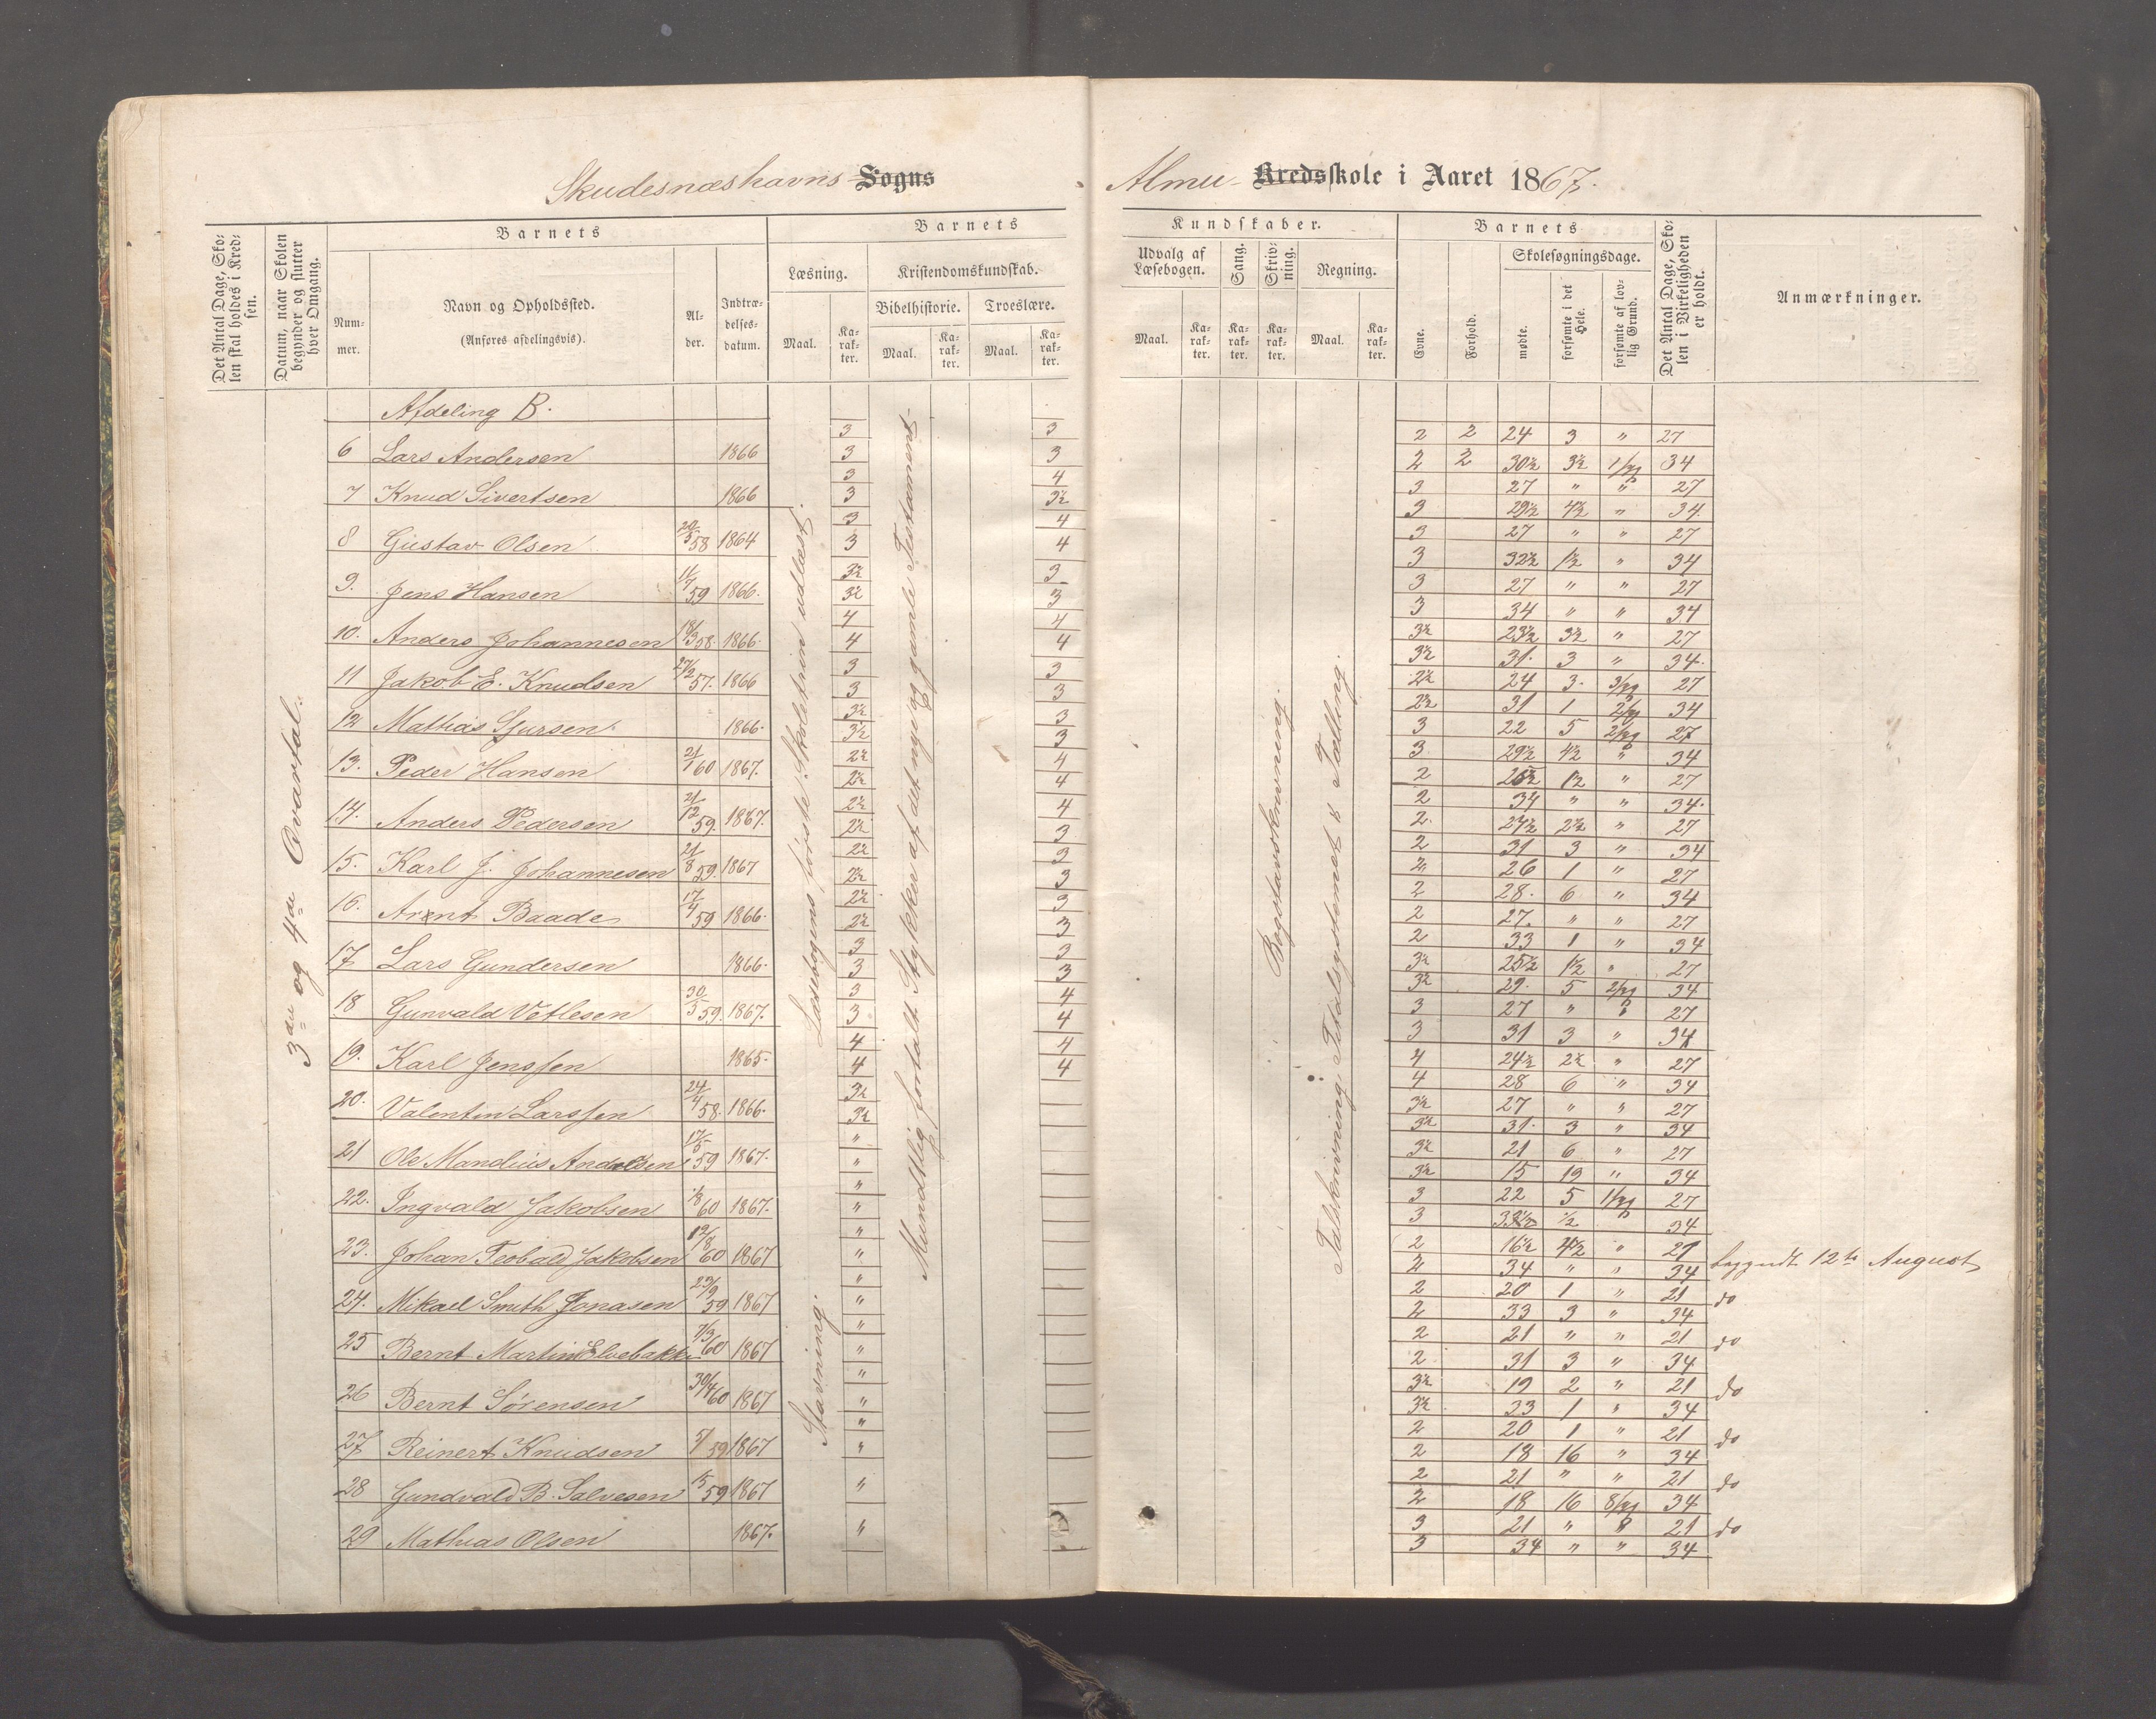 Skudesnæshavns Sogns
Almu- Kredsskole i Aaret 1867.
Det Antal Dage, Skolen skal holdes i Kredsen.
Datum, naar Skolen begynder og slutter hver Omgang.
Barnets
Nummer.
Navn og Opholdssted.
(Anføres afdelingsvis).
Alder.
Indtrædelsesdatum.
Barnets
Læsning.
Kristendomskundskab.
Bibelhistorie.
Troeslære.
Maal.
Karakter.
Maal.
Karakter.
Maal.
Karakter.
Kundskaber.
Udvalg af Læsebogen.
Sang.
Skrivning.
Regning.
Maal.
Karakter.
Karakter.
Karakter.
Maal.
Karakter.
Barnets
Evne.
Forhold.
Skolesøgningsdage.
mødte.
forsømte i det Hele.
forsømte af lovlig Grund.
Det Antal Dage, Skolen i Virkeligheden er holdt.
Anmærkninger.
3die og 4de Qvartal.
Læsebogens første Skoletrin udlæst.
Stavning.
Mundtlig fortalt Stykker af det nye og gamle Testament.
Bogstavskrivning.
Talskrivning, Titalsystemet & Tælling.
Afdeling B.
6 Lars Andersen 1866 3 3 3 3 2 2 24 3 " 27
2 2 30½ 3½ 34
7 Knud Sivertsen 1866 3 3 4 3½ 3 27 " " 27
3 29½ 4½ " 34
8 Gustav Olsen 20/5 58 1864 3 3 4 4 3 27 " " 27
3 32½ 1½ " 34
9. Jens Hansen 11/7 59 1866. 3½ 3½ 3 3 3 27 " " 27
3 34 " " 34
10. Anders Johannesen 18/3 58 1866. 4 4 4 4 3½ 23½ 3½ " 27
3½ 31. 3 " 34.
11 Jakob E. Knudsen 27/2 57. 1866 3 3 3 3 2½ 24 3. 27
2½ 31 1 34
12 Mathias Sjursen 1866. 3½ 3½ 3 3 3 22 5 27
3 29½ 4½ " 34
13. Peder Hansen 21/1 60 1867. 2½ 2½ 4 4 2 25½ 1½ " 27
2 34 " " 34.
14. Anders Pedersen 21/12 59. 1867. 2½ 2½ 4 3 2. 24½ 2½ " 27
2 31 3 " 34
15. Karl J. Johannesen 21/8 59. 1867 2½ 2½ 3 3 2 26 1 " 27
2 28. 6 " 34
16. Arent Baade 17/4 59 1866. 2½ 2½ 3 3 2 27. " " 27
2 33 1 " 34
17 Lars Gundersen 1866. 3 3 3 3 3½ 25½ 1½ " 27
3½ 29. 5 34
18 Gunvald Vetlesen 30/5 59. 1867. 3 3 4 4 3 27 " " 27
3 31 3 " 34
19. Karl Jenssen 1865. 4 4 4 4 4 24½ 2½ " 27
4 28 6 " 34
20. Valentin Larssen 24/4 58. 1866. 3½ 3½ 3½ 27 " " 27
3½ 31. 3 " 34
21 Ole Mandius Andersen 17/5 59 1867. " " 3½ 21 6 " 27
3½ 15 19 " 34
22. Ingvald Jakobsen 1/8 60 1867. " " 3 22 5 27
3 33½ ½ 34
23. Johan Teobald Jakobsen 12/8 60 1867 " " 2 16½ 4½ " 21 begyndt 12te August
2 34 " " 34
24. Mikael Smith Jonasen 23/9 59 1867 " " 2 20 1 " 21 do
2 33 3 " 34
25 Bernt Martin Elvebakke 7/3 60 1867 " " 2 21 " " 21 do
2 31 3 " 34
26 Bernt Sørensen 30/4 60 1867 " " 3½ 19 2 " 21 do
3½ 33 1 " 34
27 Reinert Knudsen 59 1867 " " 2 20 1 " 21 do
2 18 16 " 34
28 Gundvald B. Salvesen 59 1867 " 2 21 " " 21 do
2 18 16 34
29 Mathias Olsen 1867. " 3 21 " " 21 do
3 34 " " 34